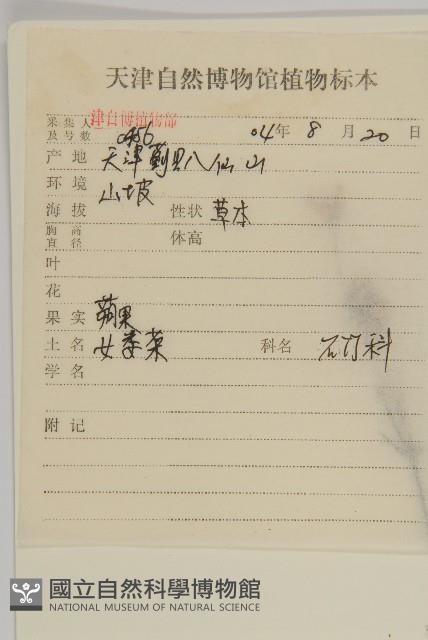 天津自然博物馆植物标本
采集人及号数 津自博植物部 0456 04年 8月 20日
产地 天津蓟县八仙山
环境 山坡
海拔 性状 草本
胸高直径 体高
叶
花
果实 蒴果
土名 女娄菜 科名 石竹科
学名
附记
國立自然科學博物館
NATIONAL MUSEUM OF NATURAL SCIENCE